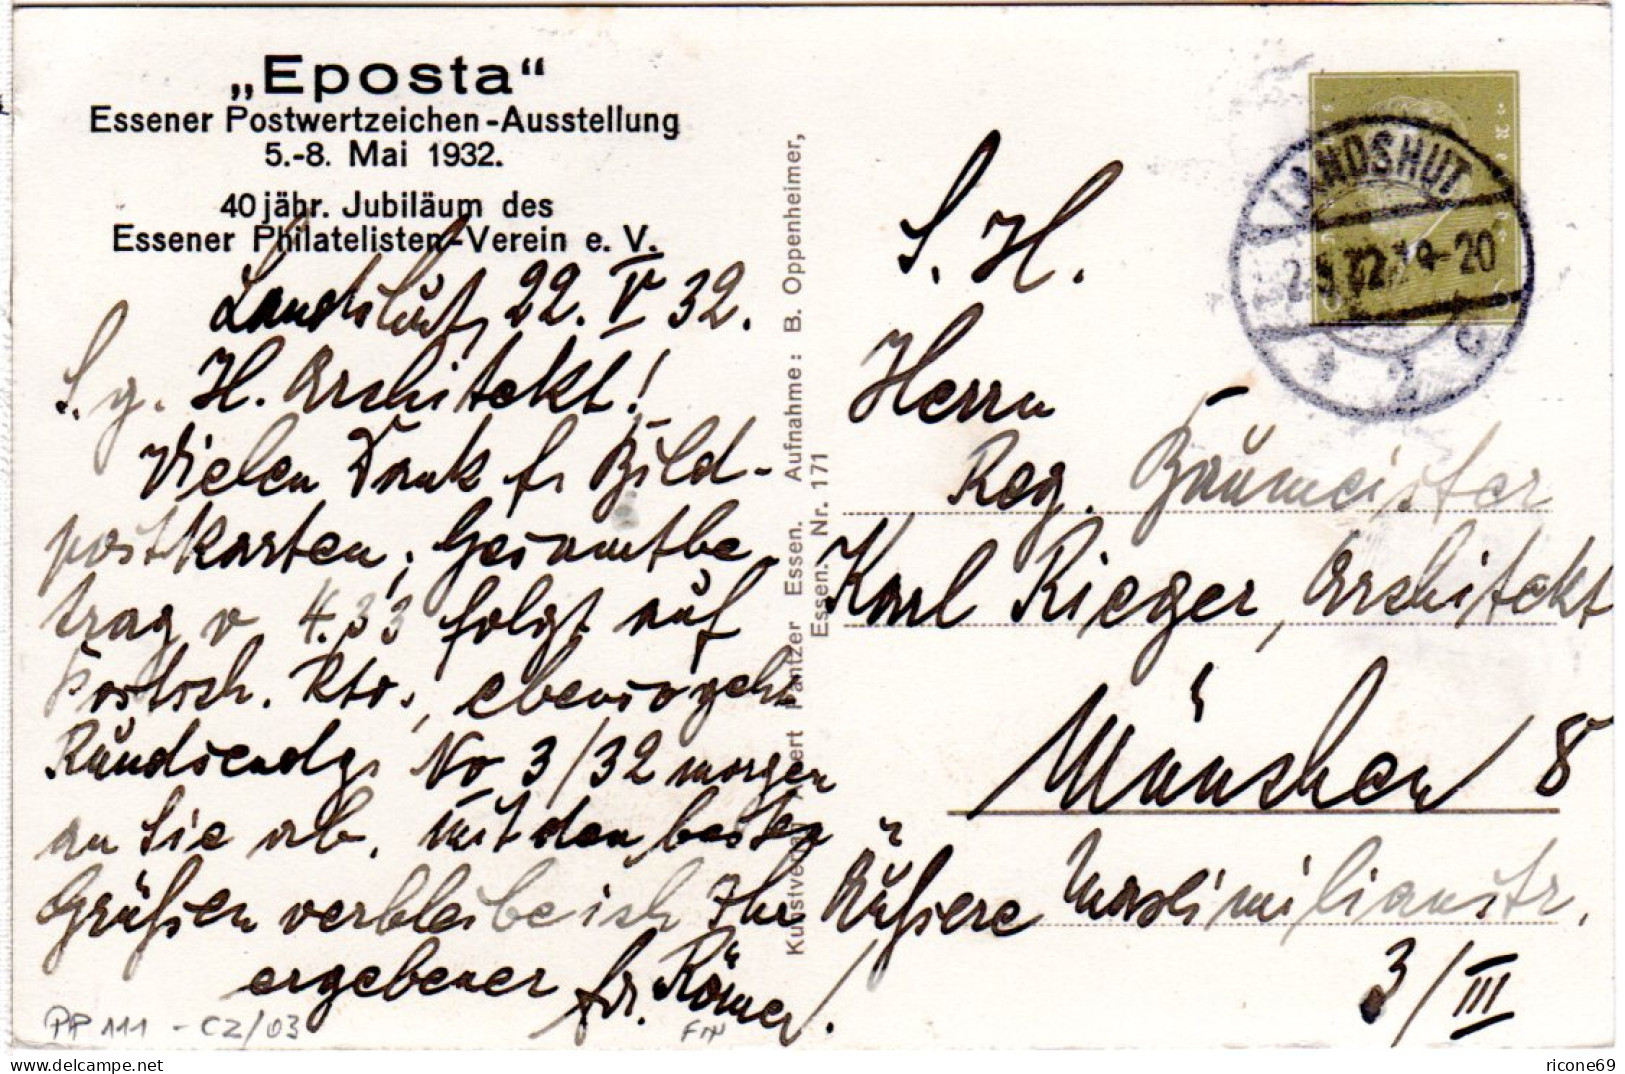 „Eposta“
Essener Postwertzeichen-Ausstellung
5.-8. Mai 1932.
40 jähr. Jubiläum des
Essener Philatelisten-Verein e. V.
Landshut, 22. V 32.
S. g. H. Architekt!
Vielen Dank f. Bild-
postkarten; Gesamtbe-
trag v 4.33 folgt auf
Postsch. Kto., ebenso geht
Rundsendg. No 3/32 morgen
an Sie ab. Mit den besten
Grüßen verbleibe ich Ihr
ergebener Fr. Römer.
PP 111 - C2/03
Kunstverlag Pantzer Essen. Aufnahme: B. Oppenheimer,
Essen. Nr. 171
LANDSHUT
19-20
2
S. H.
Herrn
Reg. Baumeister
Karl Rieger, Architekt
München 8
Äußere Maximilianstr.
3/III
delcampe.net
ricone69